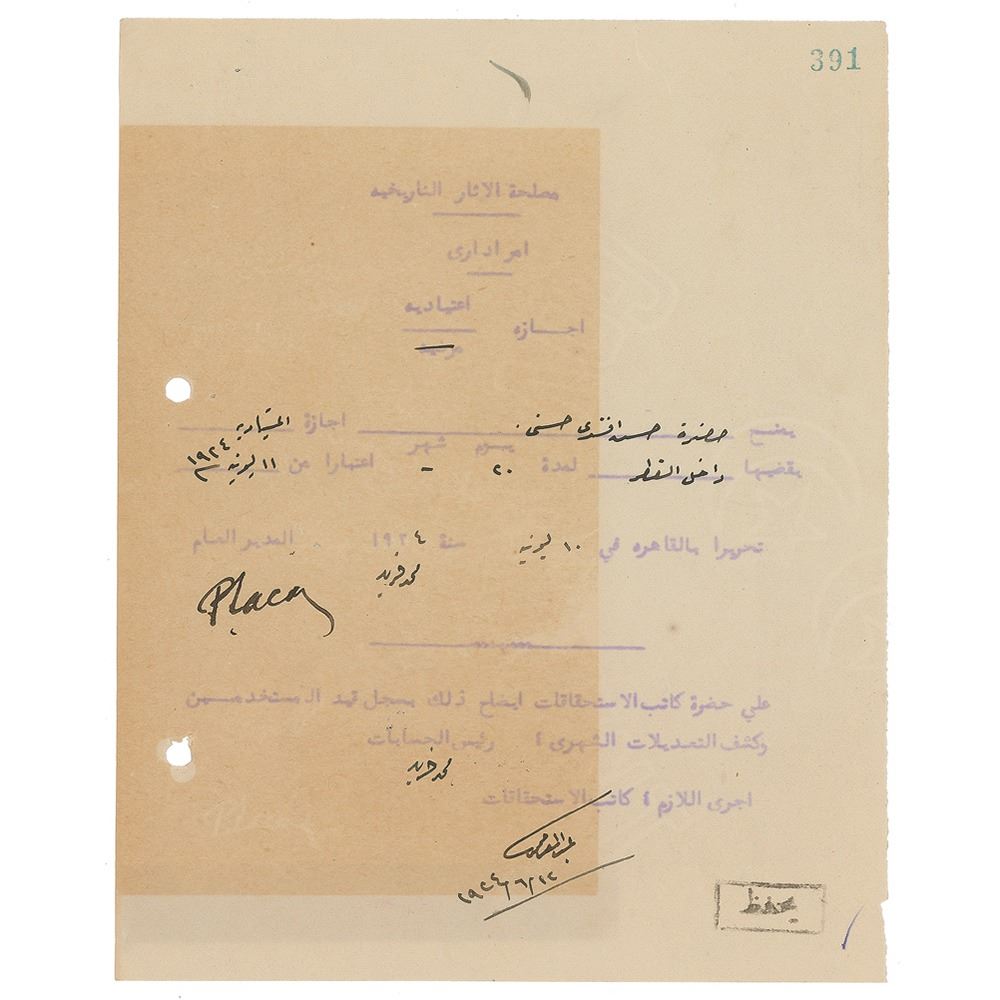 391
مصلحة الاثار التاريخيه
امر ادارى
اجازه اعتياديه
مرضيه
يمنح حضرة حسن افندى حسنى اجازة اعتياديه
يقضيها داخل القطر لمدة ٢٠ يوم - شهر اعتبارا من ١١ يونيه ١٩٢٤
تحريرا بالقاهره في ١٠ يونيه سنة ١٩٢٤ المدير العام
محمد فريد
Placa
علي حضرة كاتب الاستحقاقات ايضاح ذلك بسجل قيد المستخدمين
وكشف التعديلات الشهرى ٤ رئيس الحسابات
محمد فريد
اجرى اللازم ٤ كاتب الاستحقاقات
١٩٢٤/٦/١٢
يحفظ